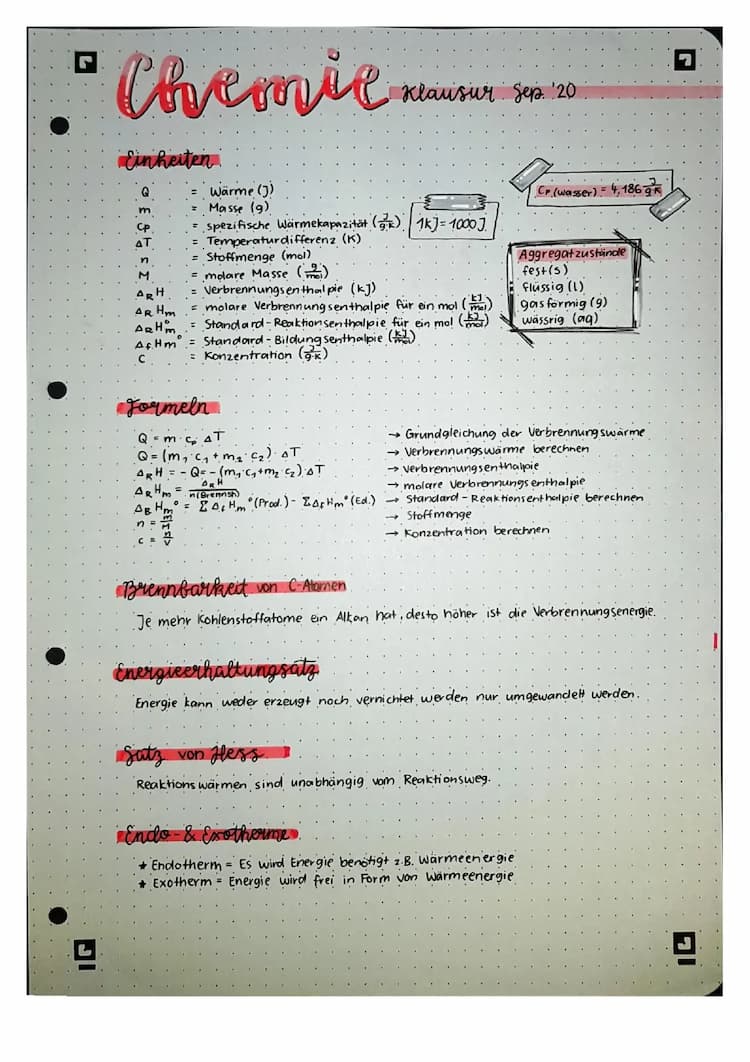 Chemie Klausur Sep. '20
Einheiten
Q = Wärme (J)
m = Masse (g)
Cp = spezifische Wärmekapazität (J/g·K)
ΔT = Temperaturdifferenz (K)
n = Stoffmenge (mol)
M = molare Masse (g/mol)
ΔRH = Verbrennungsenthalpie (kJ)
ΔRHm = molare Verbrennungsenthalpie für ein mol (kJ/mol)
ΔRH°m = Standard-Reaktionsenthalpie für ein mol (kJ/mol)
ΔfHm° = Standard-Bildungsenthalpie (kJ/mol)
C = Konzentration (J/g·K)
1kJ = 1000J
Cp(Wasser) = 4,186 J/g·K
Aggregatzustände
fest (s)
flüssig (l)
gasförmig (g)
wässrig (aq)
Formeln
Q = m · cp · ΔT → Grundgleichung der Verbrennungswärme
Q = (m1 · c1 + m2 · c2) · ΔT → Verbrennungswärme berechnen
ΔRH = -Q = -(m1·c1+m2·c2)·ΔT → Verbrennungsenthalpie
ΔRHm = ΔRH/n(Brennst.) → molare Verbrennungsenthalpie
ΔBHm° = ΣΔfHm°(Prod.) - ΣΔfHm°(Ed.) → Standard-Reaktionsenthalpie berechnen
n = m/M → Stoffmenge
c = n/V → Konzentration berechnen
Brennbarkeit von C-Atomen
Je mehr Kohlenstoffatome ein Alkan hat, desto höher ist die Verbrennungsenergie.
Energieerhaltungsatz
Energie kann weder erzeugt noch vernichtet werden nur umgewandelt werden.
Satz von Hess
Reaktionswärmen sind unabhängig vom Reaktionsweg.
Endo- & Exotherme
* Endotherm = Es wird Energie benötigt z.B. Wärmeenergie
* Exotherm = Energie wird frei in Form von Wärmeenergie